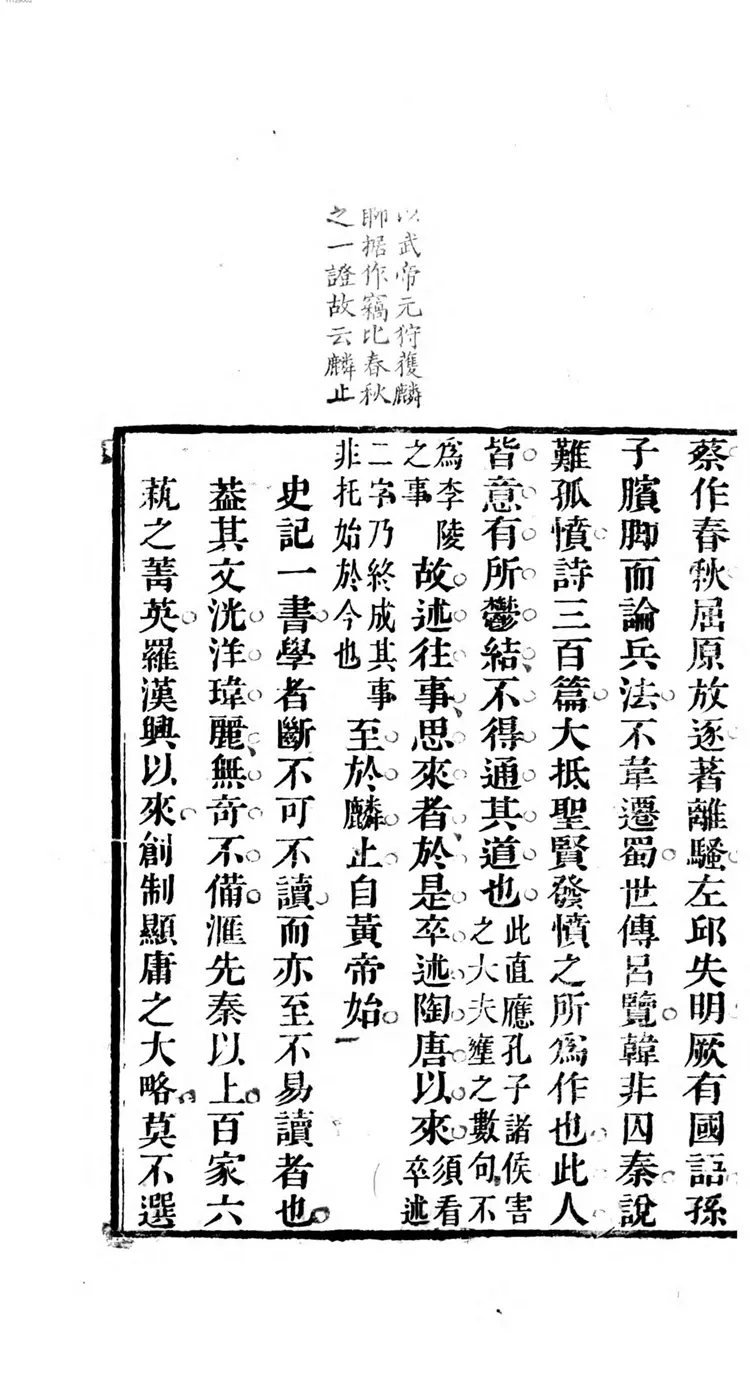 以武帝元狩獲麟
聊据作竊比春秋
之一證故云麟止
蔡作春秋屈原放逐著離騷左邱失明厥有國語孫
子臏脚而論兵法不韋遷蜀世傳呂覽韓非囚秦說
難孤憤詩三百篇大抵聖賢發憤之所爲作也此人
皆意有所鬱結不得通其道也此直應孔子諸侯害之大夫壅之數句不
爲李陵之事故述往事思來者於是卒述陶唐以來須看卒述
二字乃終成其事非托始於今也至於麟止自黃帝始
史記一書學者斷不可不讀而亦至不易讀者也
葢其文洸洋瑋麗無奇不備滙先秦以上百家六
蓺之菁英羅漢興以來創制顯庸之大略莫不選